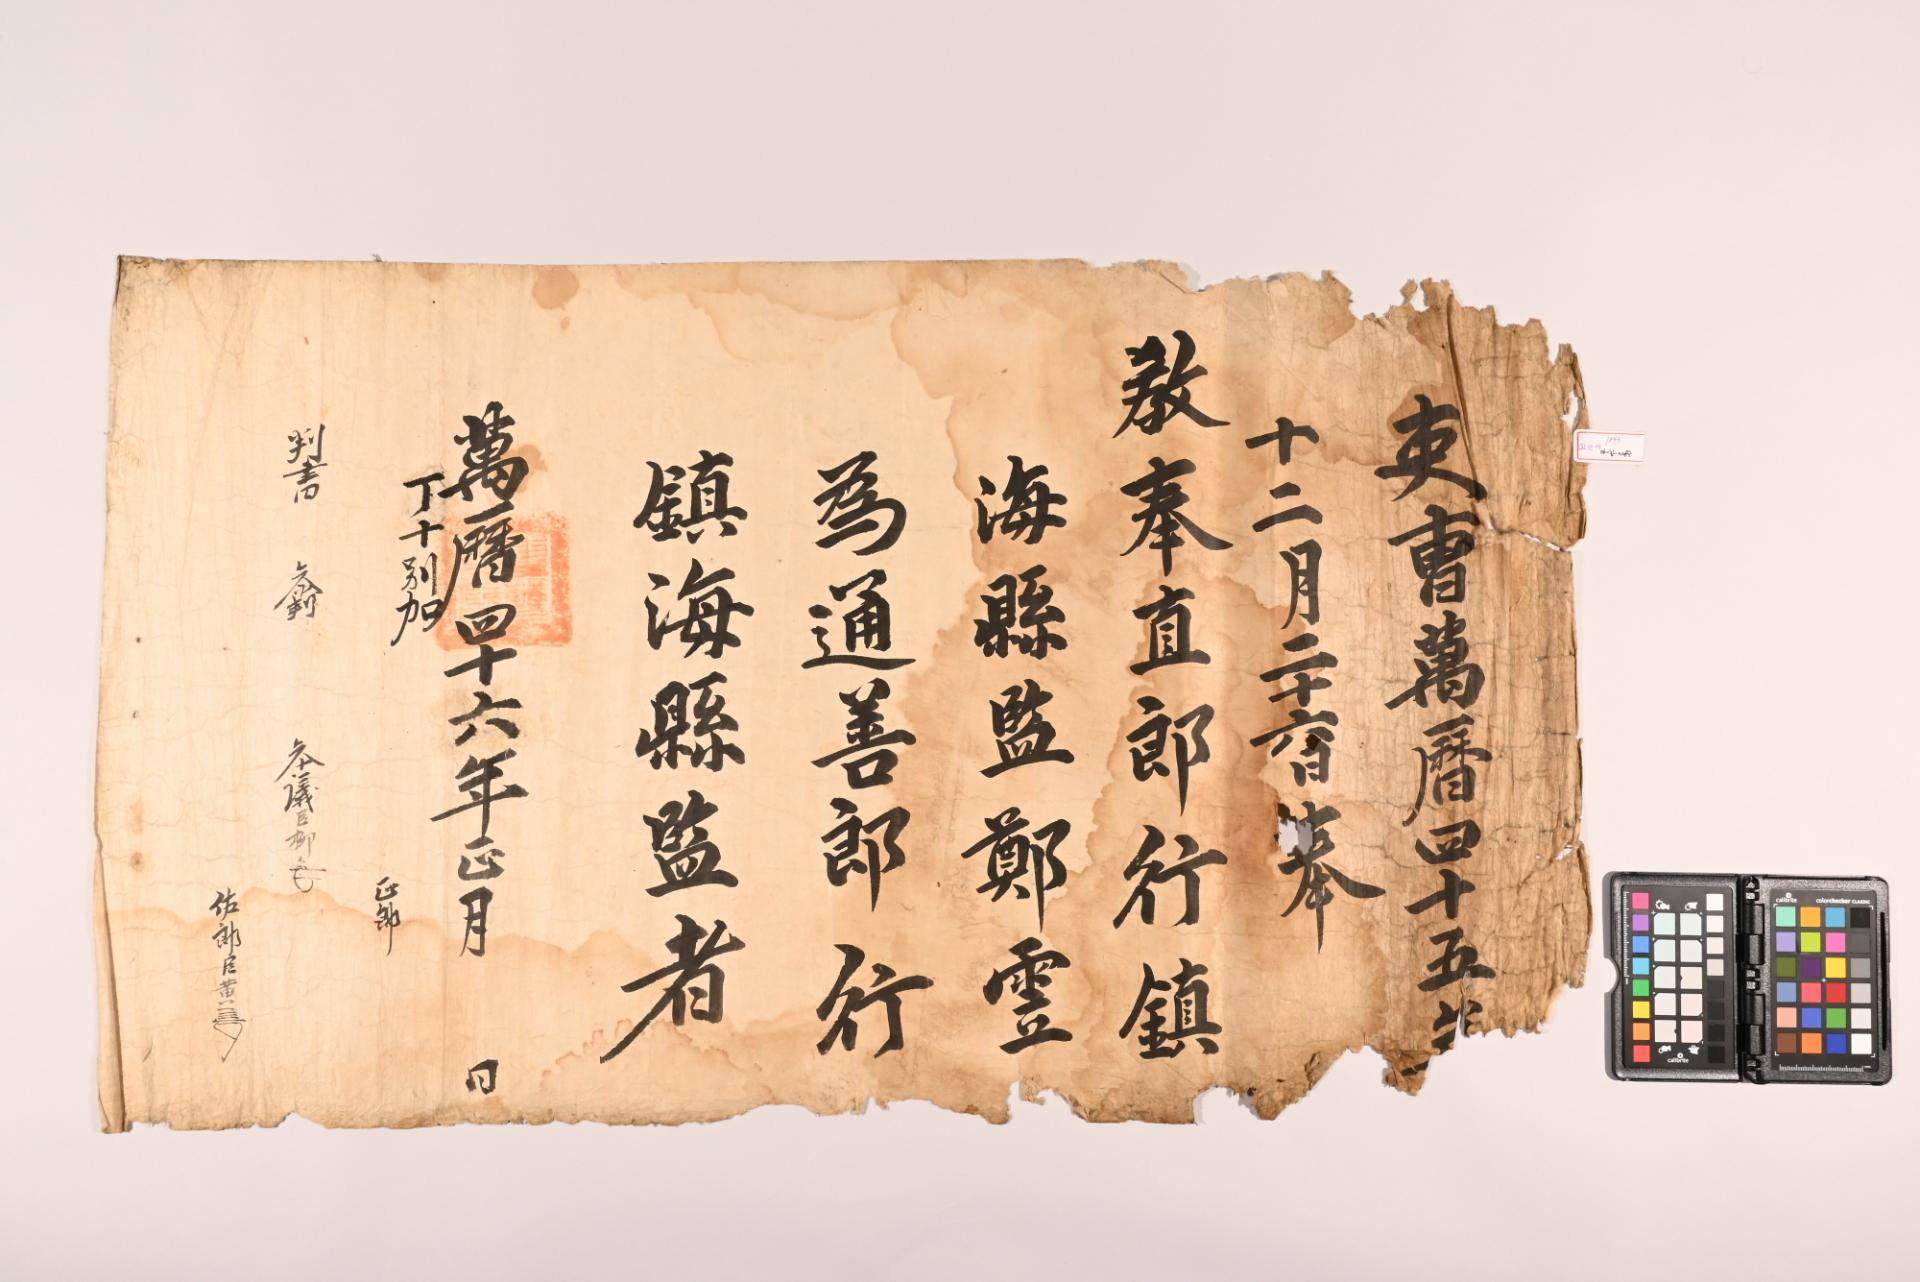 吏曹萬曆四十五年
十二月二十六日奉
敎奉直郎行鎮
海縣監鄭雲
為通善郎行
鎮海縣監者
萬曆四十六年正月 日
丁十別加
正郎
判書 參判 參議臣柳
佐郎臣黃
calibrite
colorchecker CLASSIC
calibrite